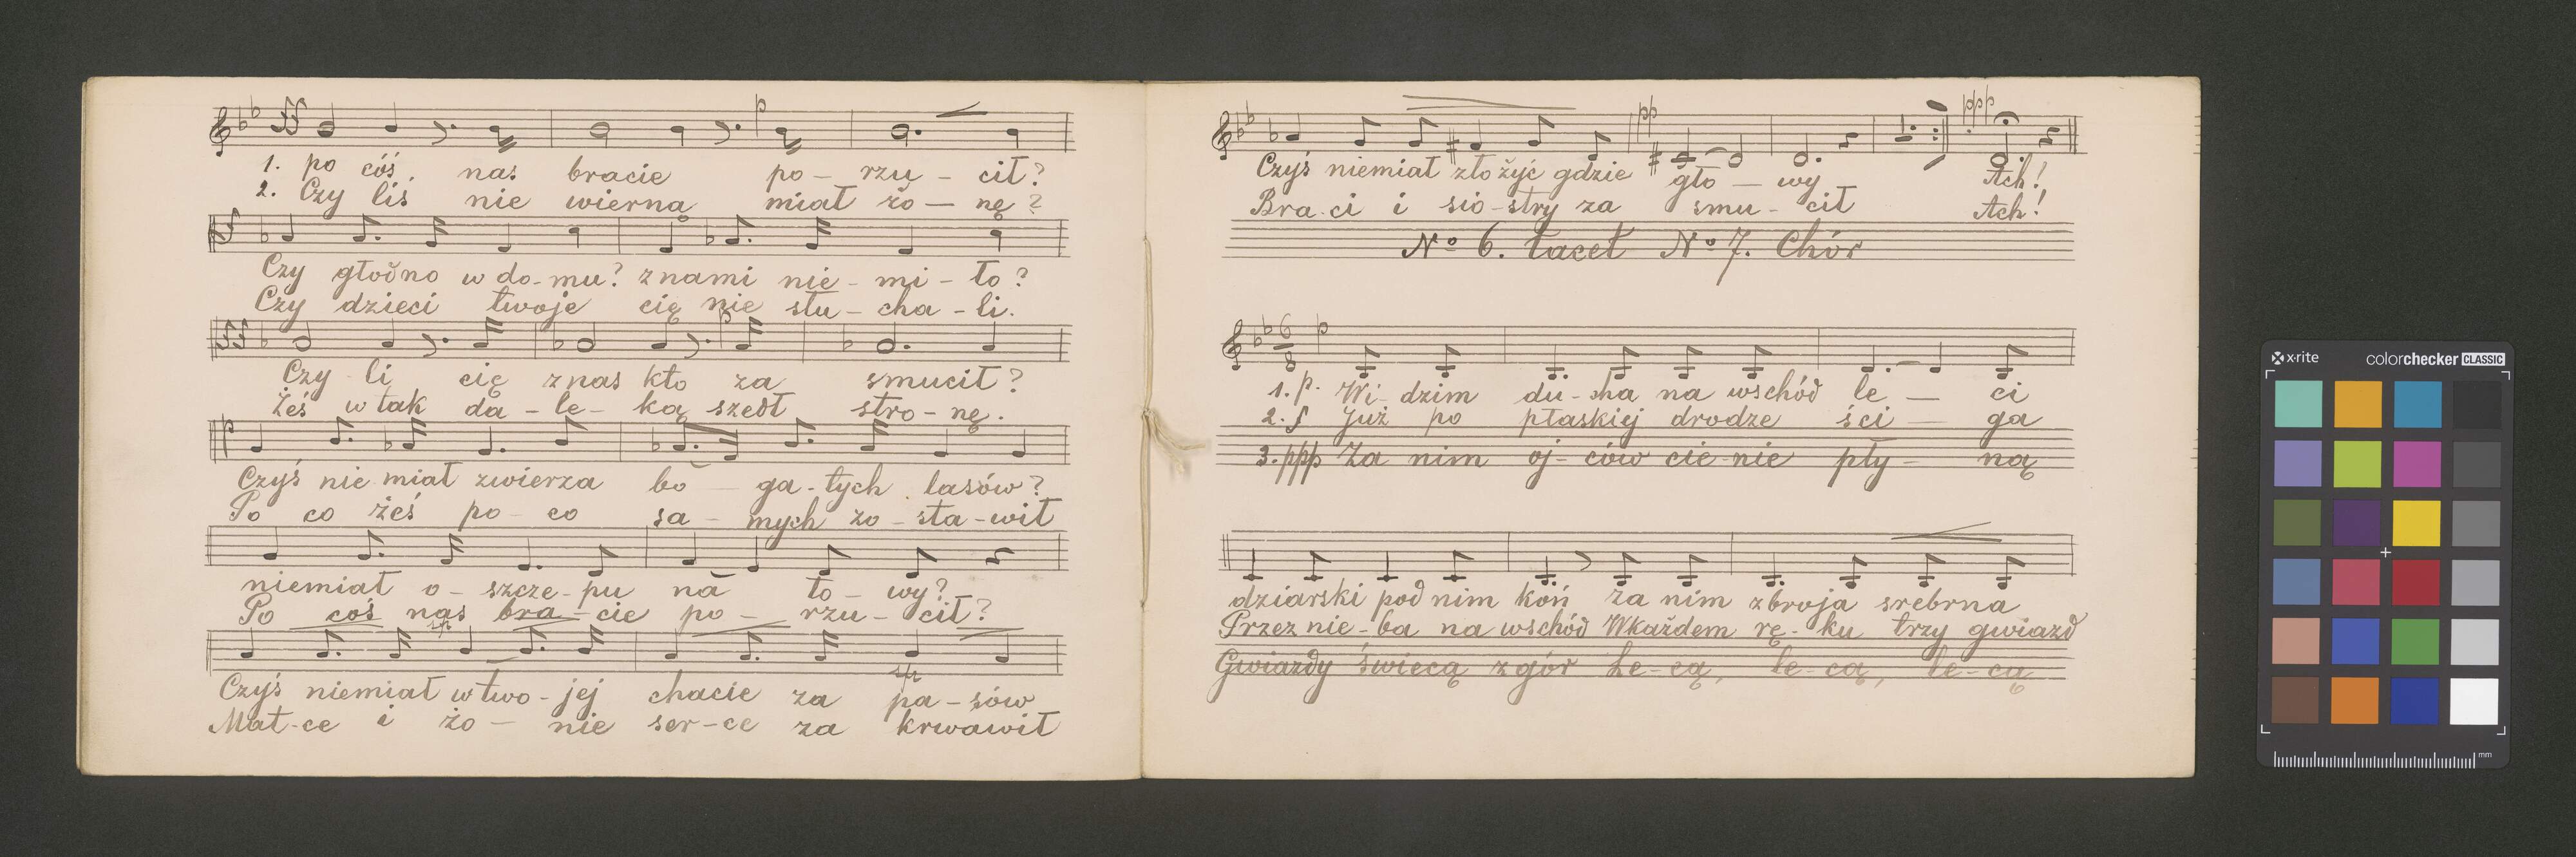 p
1. po cóś. nas bracie po – rzu – cił?
2. Czy liś nie wierną miał żo – nę?
Czy głodno w do-mu? z nami nie – mi – ło?
Czy dzieci twoje cię nie słu – cha – li.
p
Czy li cię z nas kto za smucił?
Żeś w tak da – le – ką szedł stro – nę.
p
Czyś nie miał zwierza bo – ga – tych lasów?
Po co żeś po – co sa – mych zo – sta – wił
niemiał o – szcze – pu na to – wy?
Po coś nas bra – cie po – rzu – cił?
sf
sf
Czyś niemiał w two – jej chacie za pa – sów
Mat-ce i żo – nie ser-ce za krwawił
pp ppp
Czyś niemiał złożyć gdzie gło – wy Ach!
Bra-ci i sio-stry za smu – cił Ach!
No 6. tacet No 7. Chór
6 p
8
1. p. Wi – dzim du – cha na wschód le – ci
2. f Już po płaskiej drodze ści – ga
3. ppp Za nim oj – ców cie-nie pły – ną
dziarski pod nim koń Za nim zbroja srebrna
Przez nie – ba na wschód W każdem rę – ku trzy gwiazd
Gwiazdy świecą z gór Le-cą, le-cą, le-cą
x·rite colorchecker CLASSIC
mm